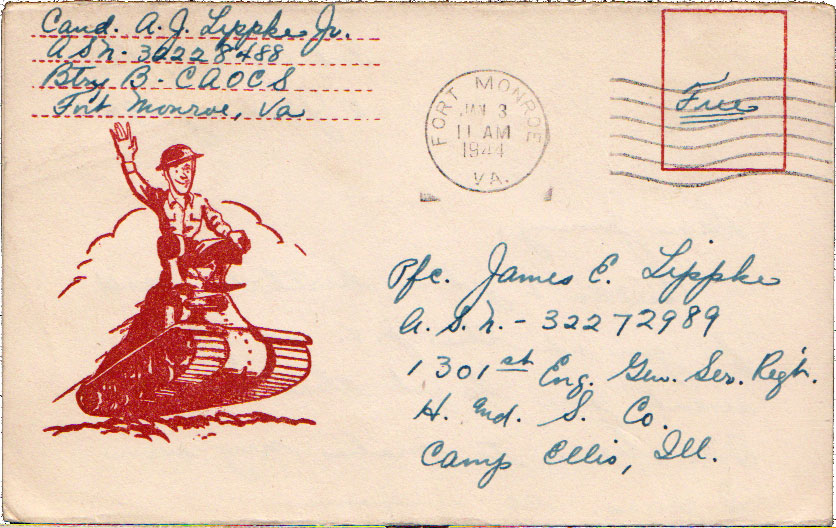 Cand. A. J. Lippke Jr.
ASN. 32228488
Btry B - CAOCS
Fort Monroe, Va
FORT MONROE
JAN 3
11 AM
1944
VA.
Free
Pfc. James E. Lippke
A.S.N. - 32272989
1301st Eng. Gen. Ser. Regt.
H. and S. Co.
Camp Ellis, Ill.